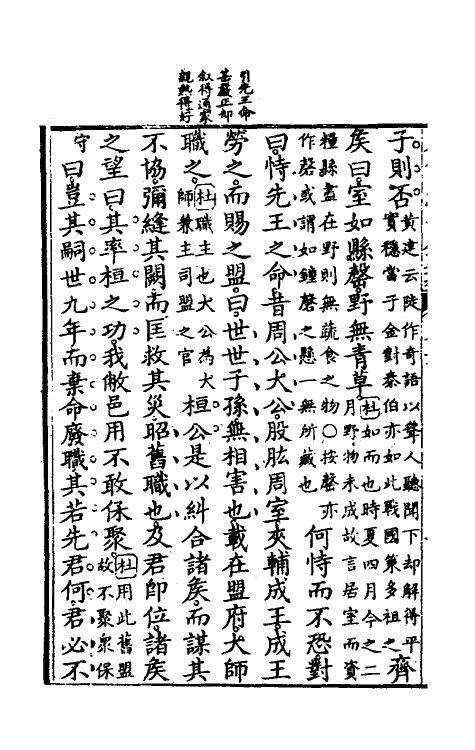 引先王命
甚嚴正却
叙得通家
親熱得好
子則否黄建云陡作奇語以聳人聽聞下却解得平實穩當子金對秦伯亦如此戰國策多祖之齊
侯曰室如縣罄野無青草杜如而也時夏四月今之二月野物未成故言居室而資
糧縣盡在野則無蔬食之物○按罄亦作磬或謂如鐘磬之懸一無所藏也何恃而不恐對
曰恃先王之命昔周公大公股肱周室夾輔成王成王
勞之而賜之盟曰世世子孫無相害也載在盟府大師
職之杜職主也大公為大師兼主司盟之官桓公是以糾合諸侯而謀其
不協彌縫其闕而匡救其災昭舊職也及君即位諸侯
之望曰其率桓之功我敝邑用不敢保聚杜用此舊盟故不聚衆保
守曰豈其嗣世九年而棄命廢職其若先君何君必不